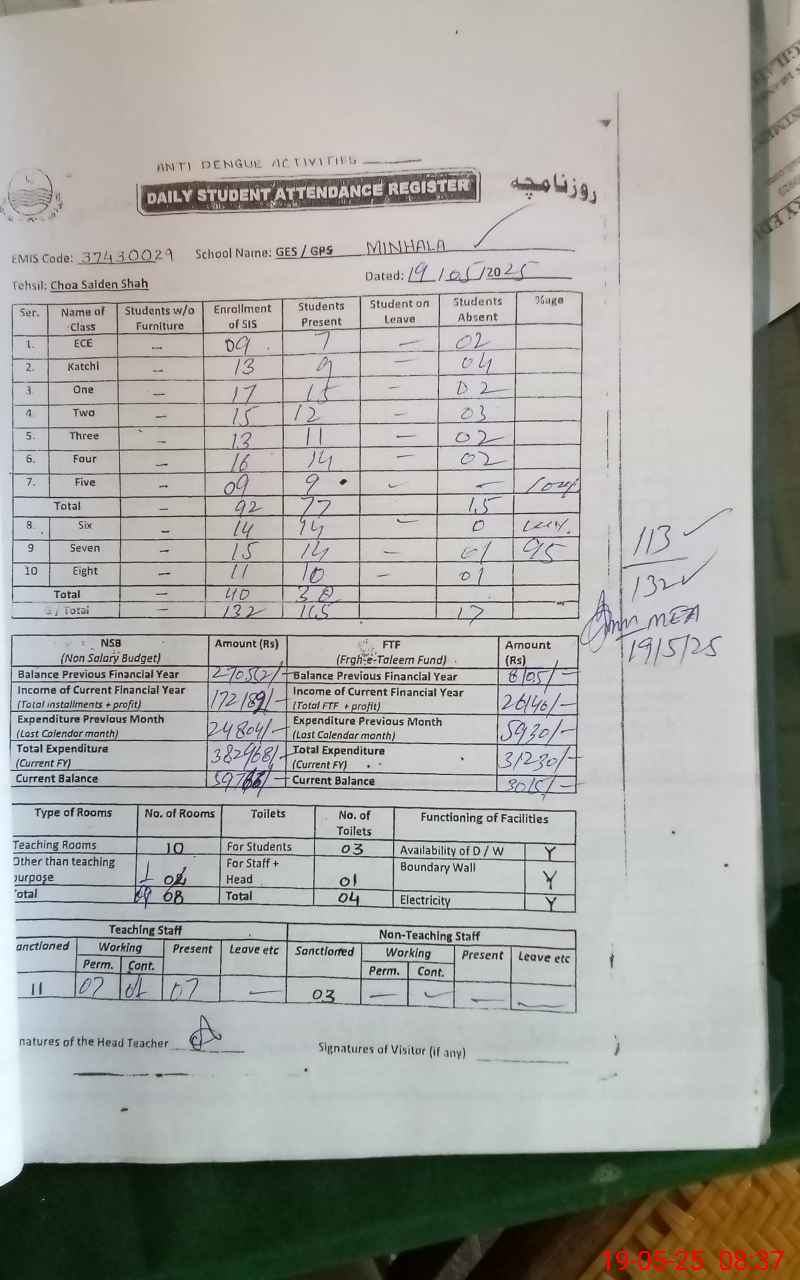 ANTI DENGUE ACTIVITIES
DAILY STUDENT ATTENDANCE REGISTER روزنامچہ
EMIS Code: 37430029 School Name: GES / GPS MINHALA
Tehsil: Choa Saiden Shah Dated: 19/05/2025
Ser. Name of Class Students w/o Furniture Enrollment of SIS Students Present Student on Leave Students Absent %age
1. ECE — 09 7 — 02
2. Katchi — 13 9 — 04
3. One — 17 15 — 02
4. Two — 15 12 — 03
5. Three — 13 11 — 02
6. Four — 16 14 — 02
7. Five — 09 9 — —
Total — 92 77 15
8. Six — 14 14 — 0
9 Seven — 15 14 — 01 95
10 Eight — 11 10 — 01
Total — 40 38
Total — 132 115 17
113
132
MEA
19/5/25
NSB (Non Salary Budget) Amount (Rs) FTF (Frgh-e-Taleem Fund) Amount (Rs)
Balance Previous Financial Year Balance Previous Financial Year 8105/-
Income of Current Financial Year (Total installments + profit) 172189/- Income of Current Financial Year (Total FTF + profit) 26140/-
Expenditure Previous Month (Last Calendar month) 24804/- Expenditure Previous Month (Last Calendar month) 5930/-
Total Expenditure (Current FY) 382968/- Total Expenditure (Current FY) 31230/-
Current Balance Current Balance 3015/-
Type of Rooms No. of Rooms Toilets No. of Toilets Functioning of Facilities
Teaching Rooms 10 For Students 03 Availability of D / W Y
Other than teaching purpose For Staff + Head 01 Boundary Wall Y
Total 08 Total 04 Electricity Y
Teaching Staff Non-Teaching Staff
anctioned Working Present Leave etc Sanctioned Working Present Leave etc
Perm. Cont. Perm. Cont.
11 07 01 07 — 03 — — — —
natures of the Head Teacher Signatures of Visitor (if any)
19-05-25 08:37